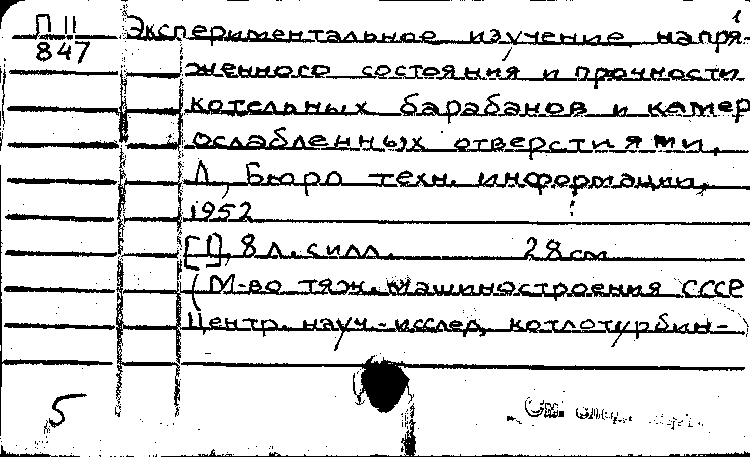 П II
847
Экспериментальное изучение напря-
женного состояния и прочности
котельных барабанов и камер
ослабленных отверстиями.
Л, Бюро техн. информации,
1952
[1], 8 л. с илл. 28 см
(М-во тяж. машиностроения СССР
Центр. науч.-исслед. котлотурбин-
5
См.